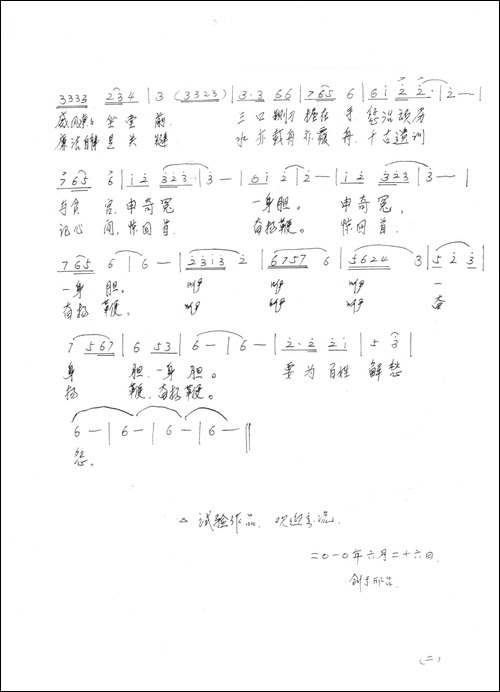 3333 234 | 3 (3323) | 3·3 66 | 765 6 | 6i 2 2· | 2 — |
威风凛凛 坐堂前 三口铡刀 握在手 惩治
廉洁自律 是关键 水亦载舟亦覆舟 千古遗训
765 6 | i2 323· | 3 — | 6i 2 | 2 — | i2 323 | 3 — |
官, 申奇冤 一身胆。 申奇冤,
记心间, 惊回首 奋扬鞭。 惊回首
765 6 | 6 — | 2313 2 | 6757 6 | 5624 3 | 5 2 3 |
一身胆。 一
奋扬鞭。 奋
7 567 | 6 53 | 6 — | 6 — | 2·2 2i | 5 3 |
身胆,一身胆。 要为百姓解愁
扬鞭,奋扬鞭。
6 — | 6 — | 6 — | 6 — ‖
怨。
△ 试验作品,欢迎交流。
二〇一〇年六月二十六日
创于
(二)